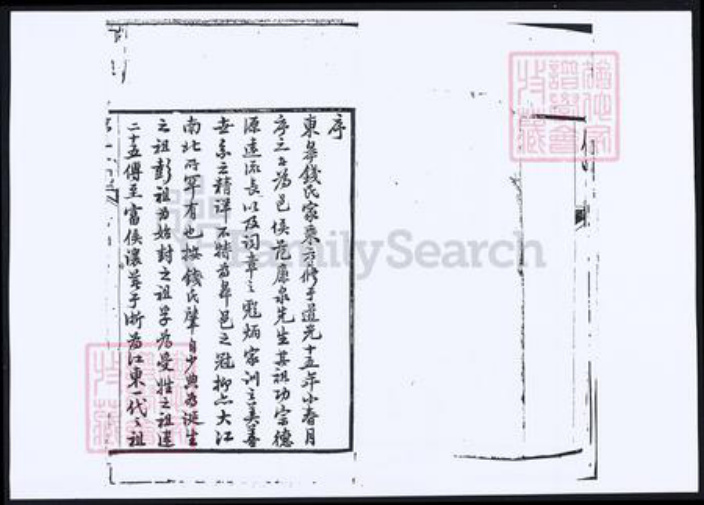 序
東皋錢氏家乘六修于道光十五年小春月
序之者為邑侯范廉泉先生其祖功宗德
源遠流長以及詞章之彪炳家訓之美善
世系之精詳不特為皋邑之冠抑亦大江
南北所罕有也按錢氏肇自少典為誕生
之祖彭祖為始封之祖孚為受姓之祖逮
二十五傳至富侯讓蒞于浙為江東一代之祖
FamilySearch